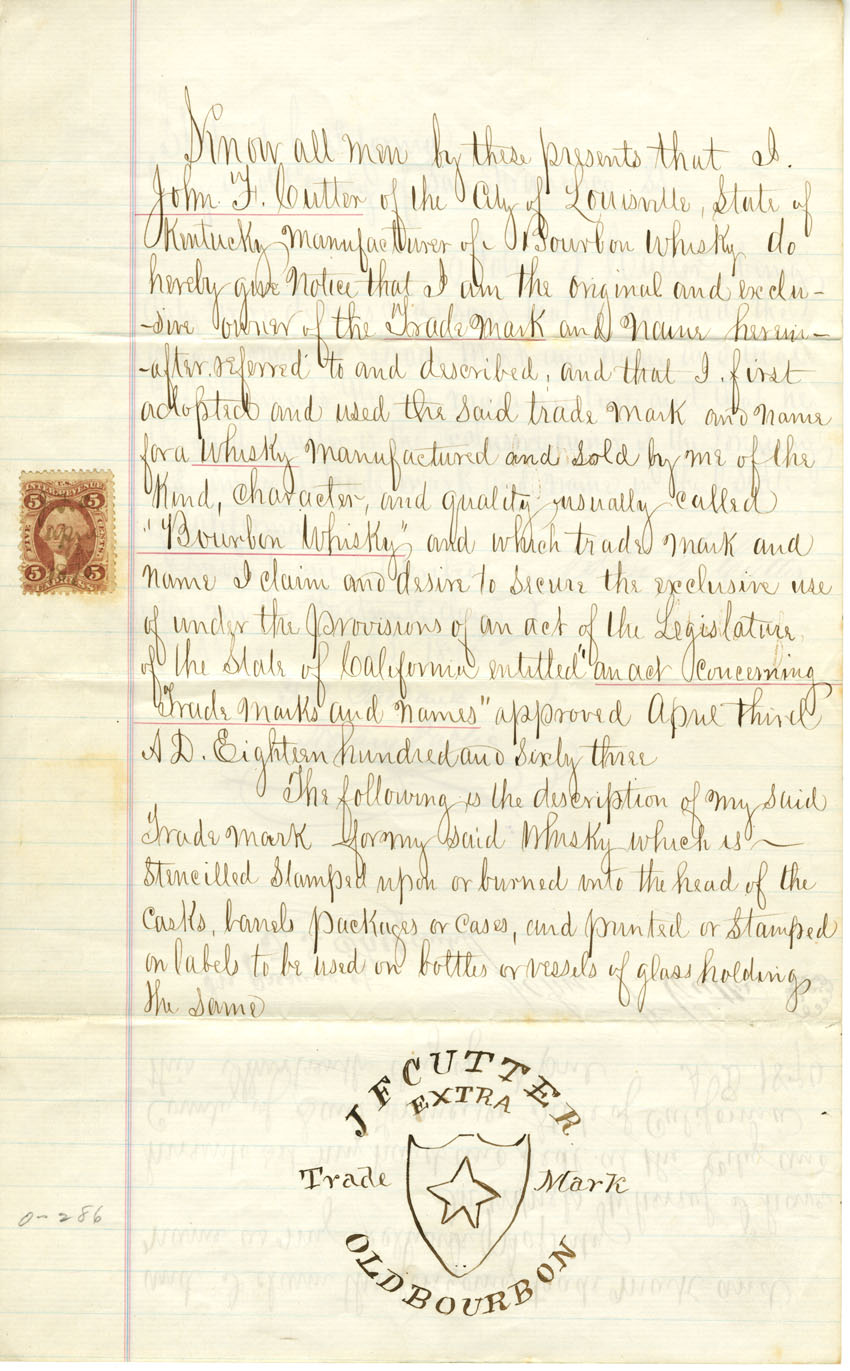 Know all men by these presents that I.
John F. Cutter of the City of Louisville, State of
Kentucky Manufacturer of Bourbon Whisky do
hereby give Notice that I am the original and exclu-
-sive owner of the Trade Mark and Name herein-
-after referred to and described, and that I first
adopted and used the said trade Mark and Name
for a Whisky Manufactured and sold by me of the
Kind, Character, and quality usually called
"Bourbon Whisky" and which trade Mark and
Name I claim and desire to secure the exclusive use
of under the Provisions of an act of the Legislature
of the State of California entitled "an act concerning
Trade Marks and Names" approved April third
A D. Eighteen hundred and sixty three
The following is the description of my said
Trade Mark for my said Whisky which is
Stencilled Stamped upon or burned into the head of the
Casks, barrels packages or cases, and printed or stamped
on labels to be used on bottles or vessels of glass holding
the same
J F CUTTER
EXTRA
Trade Mark
OLD BOURBON
0-286
5 5
INTER. REVENUE
FIVE CENTS
5 5